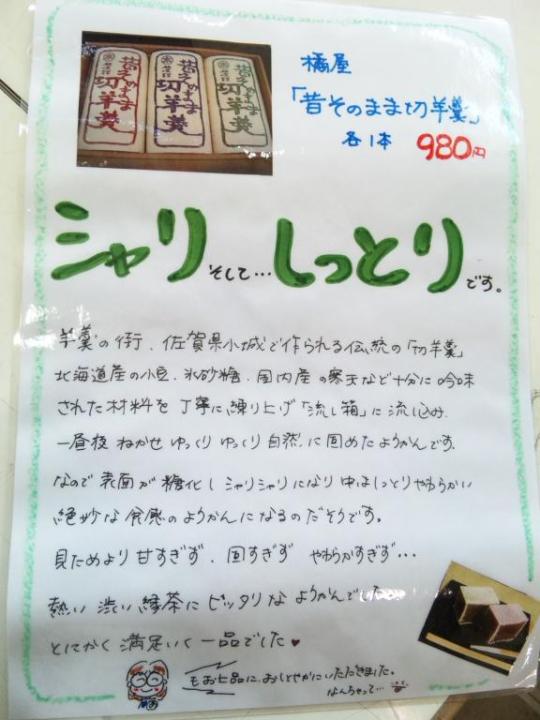 昔そのまま
切羊羹
昔そのまま
切羊羹
昔そのまま
切羊羹
橘屋
「昔そのまま切羊羹」
各1本 980円
シャリそして…しっとりです。
羊羹の街、佐賀県小城で作られる伝統の「切羊羹」
北海道産の小豆、氷砂糖、国内産の寒天など十分に吟味
された材料を丁寧に練り上げ「流し箱」に流し込み
一昼夜ねかせゆっくりゆっくり自然に固めたようかんです。
なので表面が糖化しシャリシャリになり中はしっとりやわらかい
絶妙な食感のようかんになるのだそうです。
見ためより甘すぎず、固すぎずやわらかすぎず…
熱い渋い緑茶にピッタリなようかんでした。
とにかく満足いく一品でした♥
お上品に、おしとやかにいただきました。
なんちゃって…